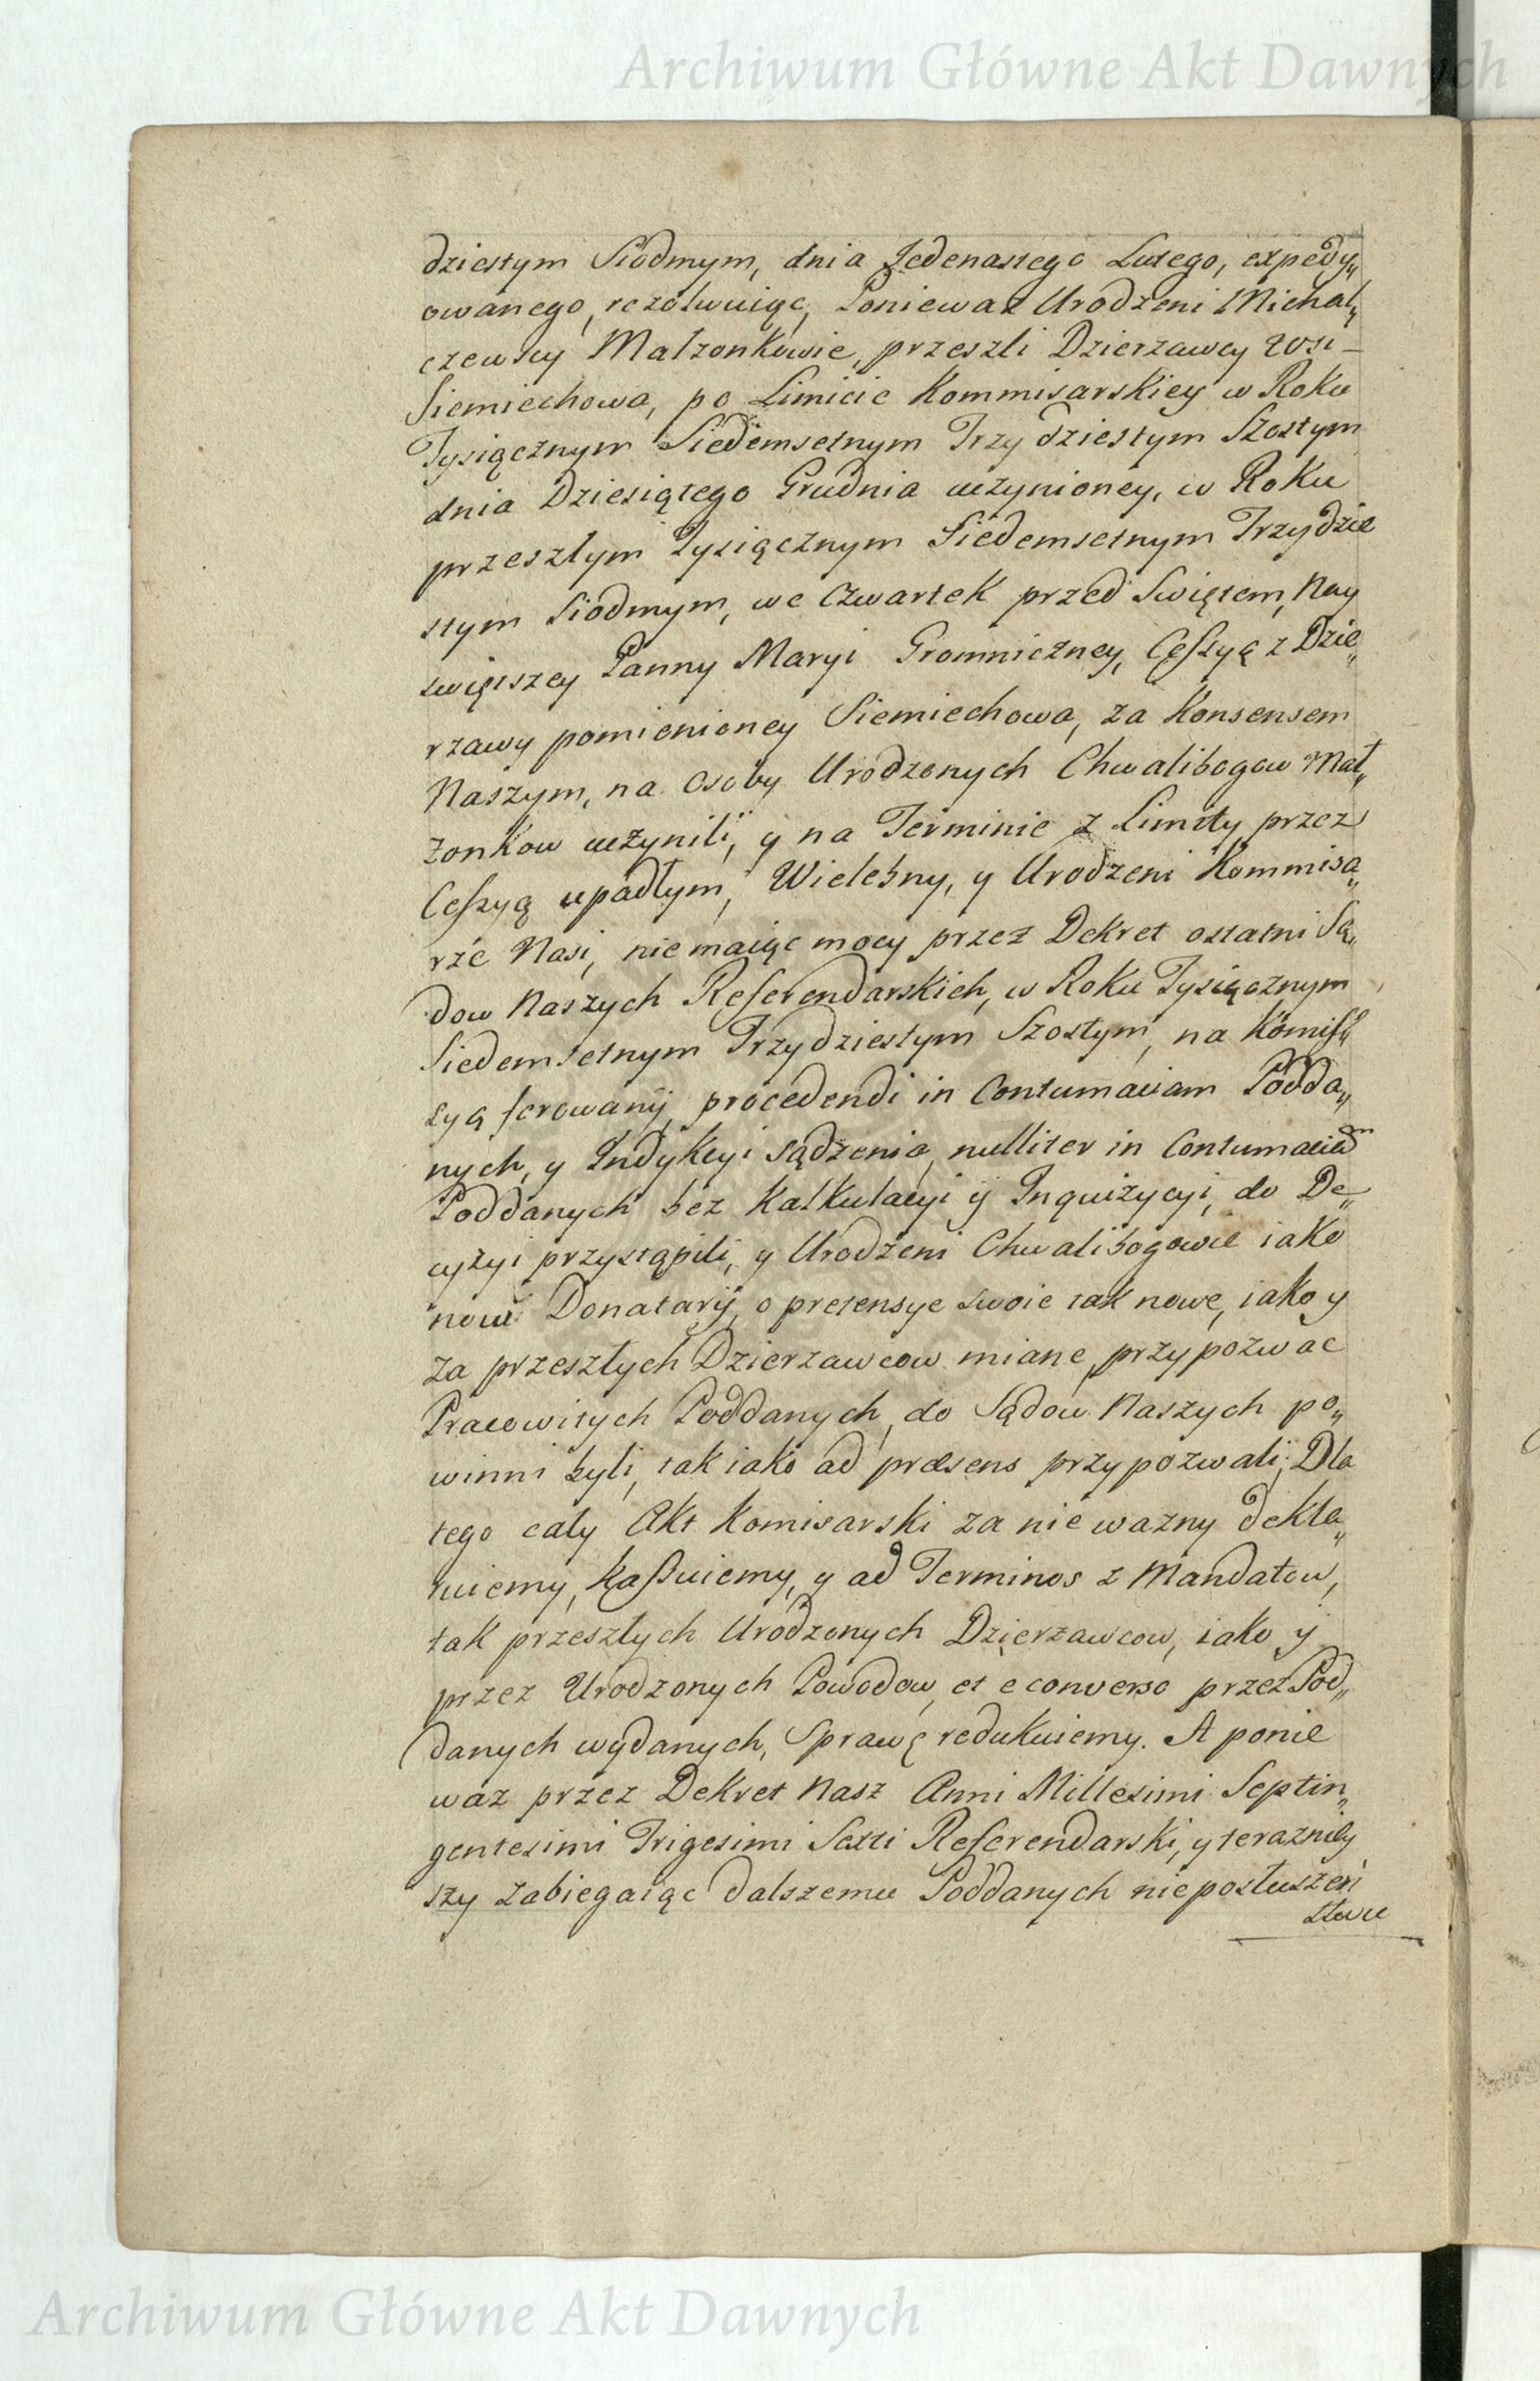 Archiwum Główne Akt Dawnych
dziestym Siodmym, dnia Jedenastego Lutego, expedy„
owanego, rezolwuiąc, Poniewaz Urodzeni Michal„
czewscy Małzonkowie, przeszli Dzierzawcy wsi –
Siemiechowa, po Limicie Kommisarskiey w Roku
Tysiącznym Siedemsetnym Trzydziestym Szostym
dnia Dziesiątego Grudnia uczynioney, w Roku
przeszłym Tysiącznym Siedemsetnym Trzydzie
stym Siodmym, we Czwartek przed Swiętem, Nay
swiętszey Panny Maryi Gromniczney, Cessyą z Dzie„
rzawy pomienioney Siemiechowa, za Konsensem
Naszym, na osoby Urodzonych Chwalibogow Mał„
zonkow uczynili, y na Terminie z Limity przez
Cessyą upadłym, Wielebny, y Urodzeni Kommisa„
rze Nasi, niemaiąc mocy przez Dekret ostatni Są„
dow Naszych Referendarskich, w Roku Tysiącznym
Siedemsetnym Trzydziestym Szostym, na Komiss„
syą ferowany, procedendi in Contumaciam Podda„
nych, y Indykcyi sądzenia, nulliter in Contumaciam
Poddanych bez Kalkulacyi y Inquizycyi, do De„
cyzyi przystąpili, y Urodzeni Chwalibogowie iako
nowi Donataryi, o pretensye swoie tak nowe, iako y
za przeszłych Dzierzawcow miane, przypozwac
Pracowitych Poddanych, do Sądow Naszych po„
winni byli, tak iako ad præsens przypozwali; Dla
tego cały Akt Komisarski za niewazny dekla„
ruiemy, kassuiemy, y ad Terminos z Mandatow,
tak przeszłych Urodzonych Dzierzawcow, iako y
przez Urodzonych Powodow, et e converso przez Pod„
danych wydanych, Sprawę redukuiemy. A ponie
waz przez Dekret Nasz Anni Millesimi Septin„
gentesimi Trigesimi Sexti Referendarski, y teraznieÿ
szy zabiegaiąc dalszemu Poddanych nieposłuszeń
stwu
Archiwum Główne Akt Dawnych